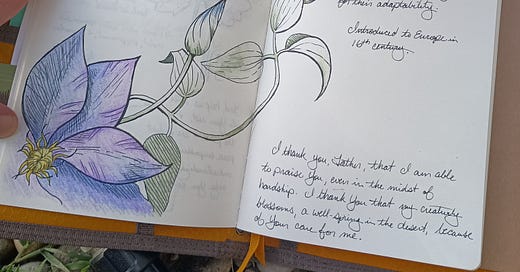 for their adaptability.
Introduced to Europe in
16th century.
I thank you, Father, that I am able
to praise You, even in the midst of
hardship. I thank You that my creativity
blossoms, a well-spring in the desert, because
of Your care for me.